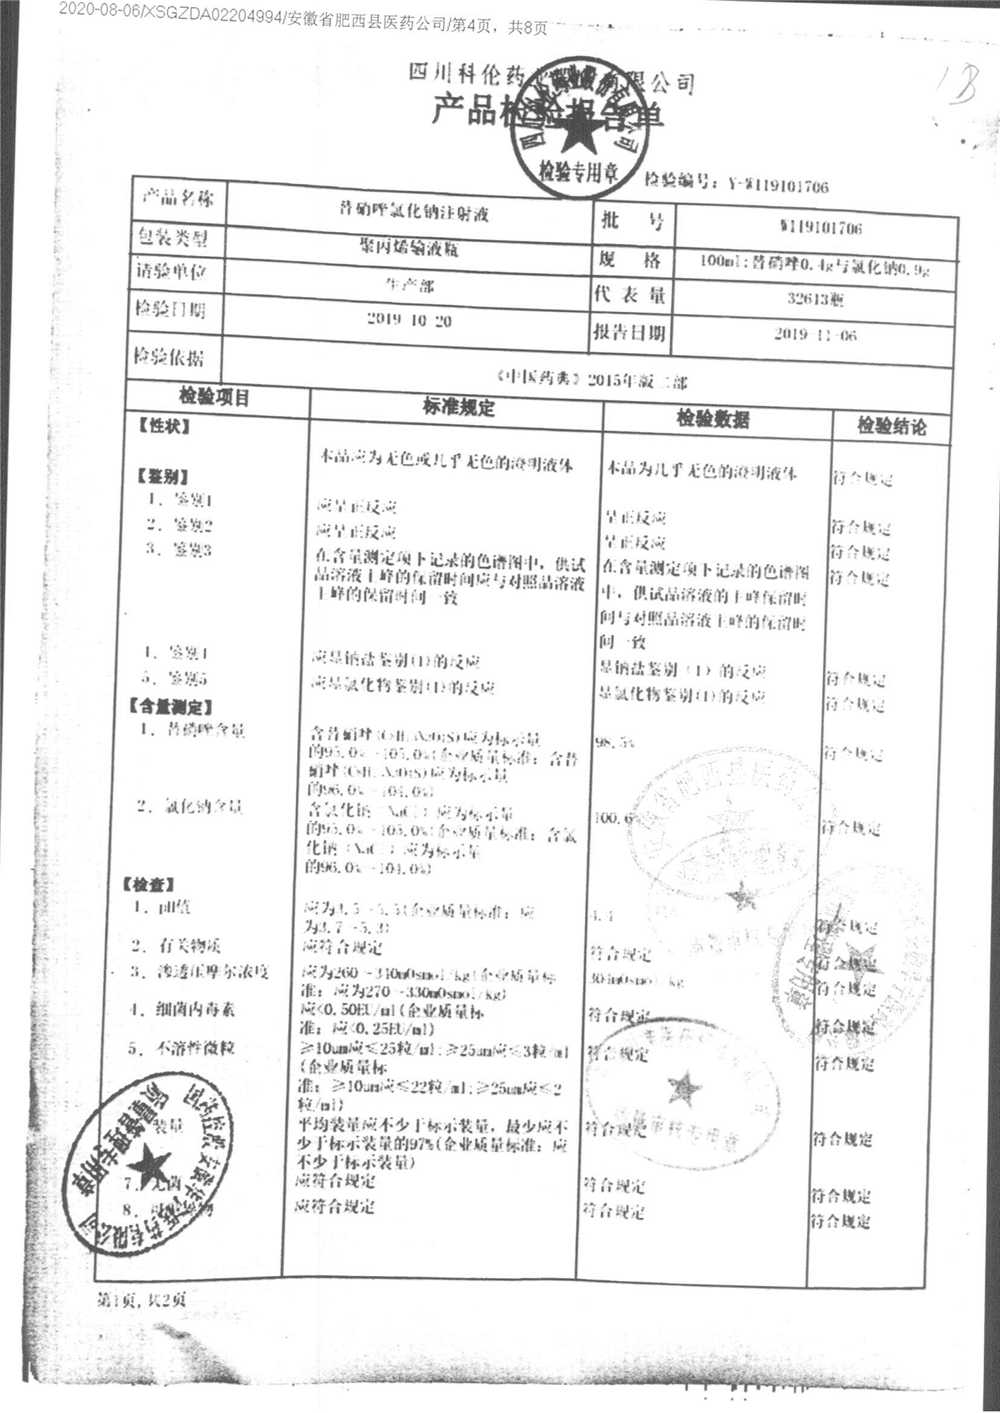 2020-08-06/XSGZDA02204994/安徽省肥西县医药公司/第4页，共8页
四川科伦药 有限公司
产品检验报告单
检验专用章
检验编号：Y-W119101706
产品名称 替硝唑氯化钠注射液 批 号 W119101706
包装类型 聚丙烯输液瓶 规 格 100ml:替硝唑0.4g与氯化钠0.9g
请验单位 生产部 代 表 量 32613瓶
检验日期 2019-10-20 报告日期 2019-11-06
检验依据 《中国药典》2015年版二部
检验项目 标准规定 检验数据 检验结论
【性状】
本品应为无色或几乎无色的澄明液体 本品为几乎无色的澄明液体 符合规定
【鉴别】
1、鉴别1 应呈正反应 呈正反应 符合规定
2、鉴别2 应呈正反应 呈正反应 符合规定
3、鉴别3 在含量测定项下记录的色谱图中，供试 在含量测定项下记录的色谱图 符合规定
品溶液主峰的保留时间应与对照品溶液 中，供试品溶液的主峰保留时
主峰的保留时间一致 间与对照品溶液主峰的保留时
间一致
4、鉴别4 应显钠盐鉴别(1)的反应 显钠盐鉴别（1）的反应 符合规定
5、鉴别5 应显氯化物鉴别(1)的反应 显氯化物鉴别(1)的反应 符合规定
【含量测定】
1、替硝唑含量 含替硝唑 应为标示量 98.5% 符合规定
的95.0%~105.0%(企业质量标准：含替
硝唑 应为标示量
的96.0%~104.0%)
2、氯化钠含量 含氯化钠 应为标示量 100.6% 符合规定
的95.0%~105.0%(企业质量标准：含氯
化钠 应为标示量
的96.0%~104.0%)
【检查】
1、pH值 应为3.5~5.5(企业质量标准：应 符合规定
为3.7~5.3)
2、有关物质 应符合规定 符合规定 符合规定
3、渗透压摩尔浓度 应为260~340mOsmol/kg(企业质量标 mOsmol/kg 符合规定
准：应为270~330mOsmol/kg)
4、细菌内毒素 应<0.50EU/ml(企业质量标 符合规定 符合规定
准：应<0.25EU/ml)
5、不溶性微粒 ≥10um应≤25粒/ml;≥25um应≤3粒/ml 符合规定 符合规定
(企业质量标
准：≥10um应≤22粒/ml;≥25um应≤2
粒/ml)
装量 平均装量应不少于标示装量，最少应不 符合规定 符合规定
少于标示装量的97%(企业质量标准：应
不少于标示装量)
7、无菌 应符合规定 符合规定 符合规定
8、 应符合规定 符合规定 符合规定
第1页,共2页